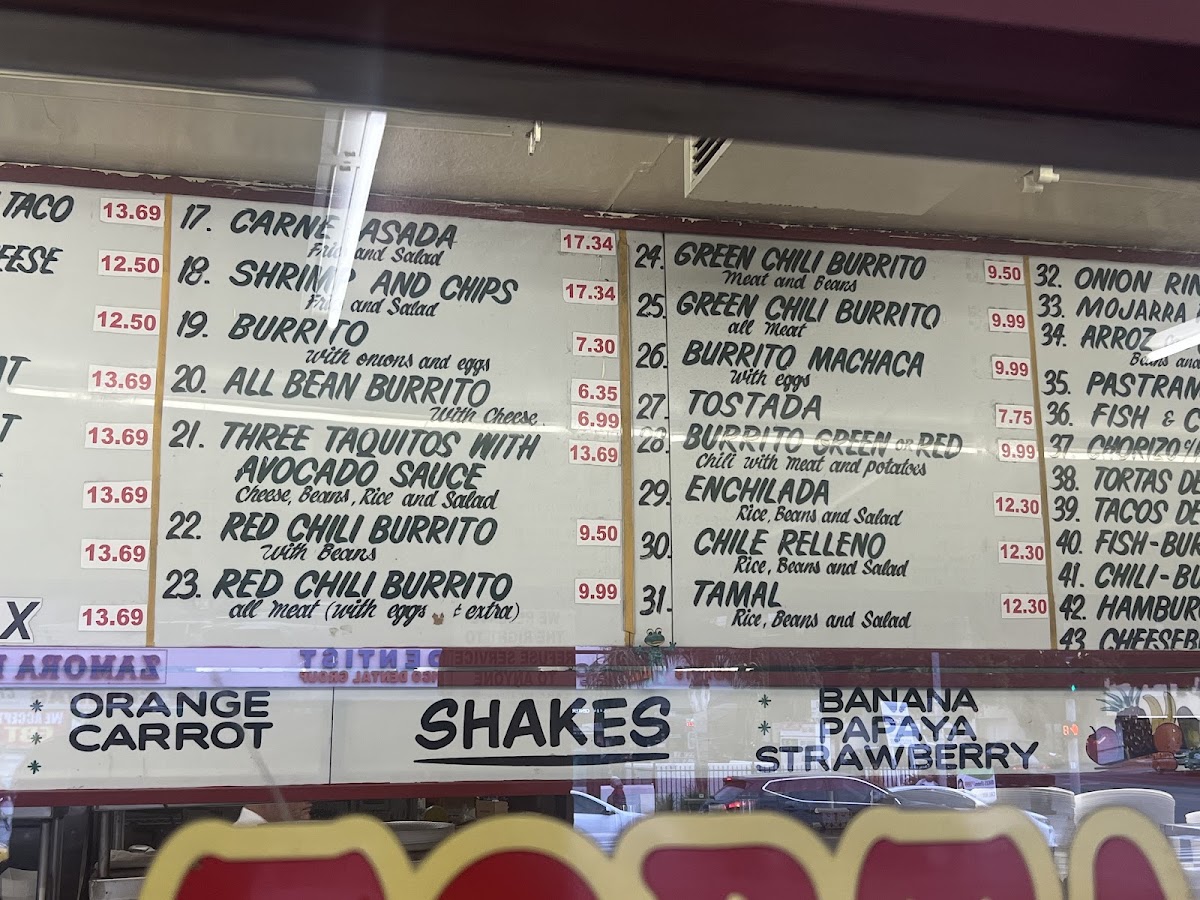 TACO 13.69
EESE 12.50
12.50
13.69
13.69
13.69
13.69
X 13.69
17. CARNE ASADA 17.34
and Salad
18. SHRIMP AND CHIPS 17.34
and Salad
19. BURRITO 7.30
with onions and eggs
20. ALL BEAN BURRITO 6.35
With Cheese 6.99
21. THREE TAQUITOS WITH 13.69
AVOCADO SAUCE
Cheese, Beans, Rice and Salad
22. RED CHILI BURRITO 9.50
With Beans
23. RED CHILI BURRITO 9.99
all meat (with eggs ¢ extra)
24. GREEN CHILI BURRITO 9.50
Meat and Beans
25. GREEN CHILI BURRITO 9.99
all meat
26. BURRITO MACHACA 9.99
With eggs
27. TOSTADA 7.75
28. BURRITO GREEN OR RED 9.99
Chili with meat and potatoes
29. ENCHILADA 12.30
Rice, Beans and Salad
30. CHILE RELLENO 12.30
Rice, Beans and Salad
31. TAMAL 12.30
Rice, Beans and Salad
32. ONION RIN
33. MOJARRA
34. ARROZ
Beans and
35. PASTRAM
36. FISH & C
37. CHORIZO
38. TORTAS DE
39. TACOS DE
40. FISH-BUR
41. CHILI-BU
42. HAMBUR
43. CHEESEB
ZAMORA
DENTIST
DENTAL GROUP
REFUSE SERVICE
TO ANYONE
ORANGE
CARROT
SHAKES
BANANA
PAPAYA
STRAWBERRY